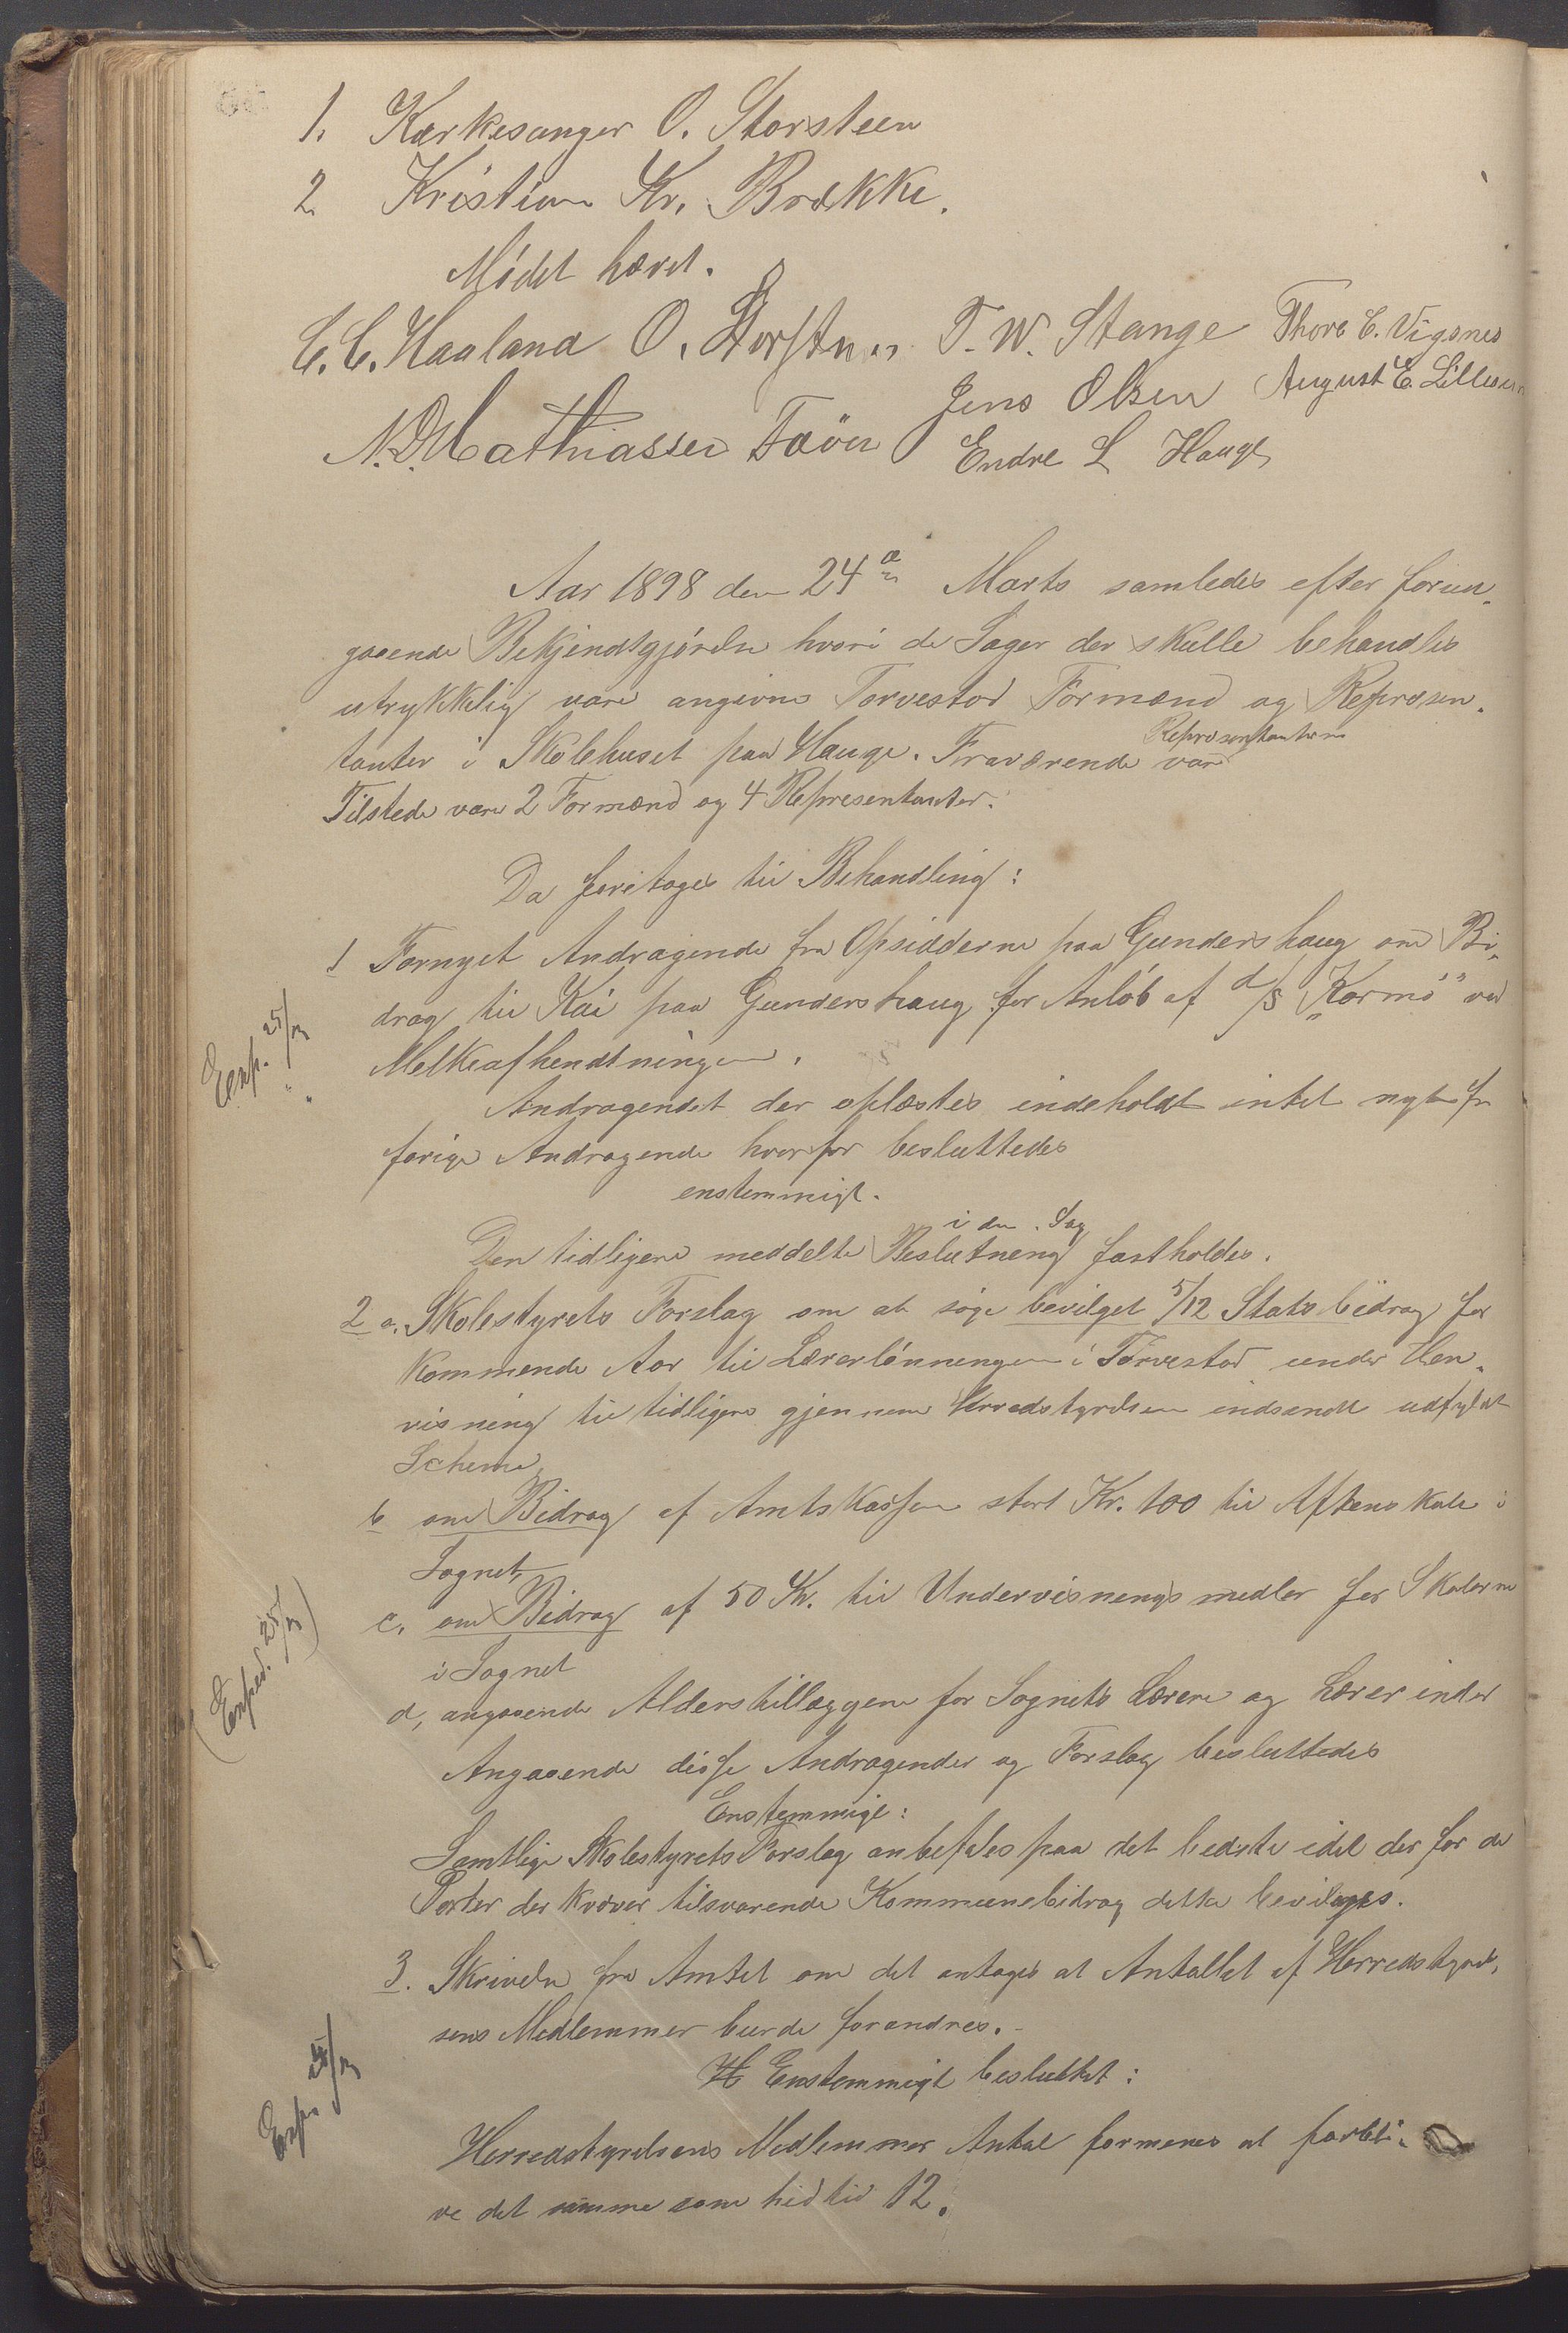 1. Kirkesanger O. Storsteen
2 Kristian Kr. Brække.
Mødet hævet.
C. C. Haaland O. Storsten T. W. Stange Thore C. Vigsnes
N. D. Mathiassen Favn Jens Olsen August E. Lillesun
Endre L Hauge
Aar 1898 den 24de Marts samledes efter forun-
gaaende Bekjendtgjørelse hvori de Sager der skulle behandles
utrykkelig vare angivne Torvestad Formænd og Repræsen-
tanter i Skolehuset paa Hauge. Fraværende var Repræsentanterne
Tilstede vare 2 Formænd og 4 Repræsentanter.
Da foretoges til Behandling:
1 Fornyet Andragende fra Opsidderne paa Gundershaug om Bi-
drag til Kai paa Gundershaug for Anløb af d/s "Karmø" ved
Melkeafhendtningen.
Exp. 25/3
Andragendet der oplæstes indeholdt intet nyt fra
forige Andragende hvorfor besluttedes
enstemmigt.
Den tidligere meddelte Beslutning i den Sag fastholdes.
2 a. Skolestyrets Forslag om at søge bevilget 5/12 Statsbidrag for
kommende Aar til Lærerlønningen i Torvestad under Hen-
visning til tidligere gjennem Herredstyrelsen indsendt udfyldt
Schema
b om Bidrag af Amtskassen stort Kr. 100 til Aftenskole i
Sognet
c. om Bidrag af 50 Kr. til Undervisningsmedler for Skolerne
i Sognet
(Exped. 25/3)
d, angaaende Alderstillæggene for Sognets Lærere og Lærerinder
Angaaende disse Andragender og Forslag besluttedes
Enstemmigt:
Samtlige Skolestyrets Forslag anbefales paa det bedste idet der for de
Poster der kræver tilsvarende Kommunebidrag dette bevilges.
3. Skrivelse fra Amtet om det antages at Antallet af Herredstyrel-
sens Medlemmer burde forandres.-
H Enstemmigt besluttet:
Exp. 25/3
Herredstyrelsens Medlemmer Antal formenes at forbli-
ve det samme som hidtil 12.